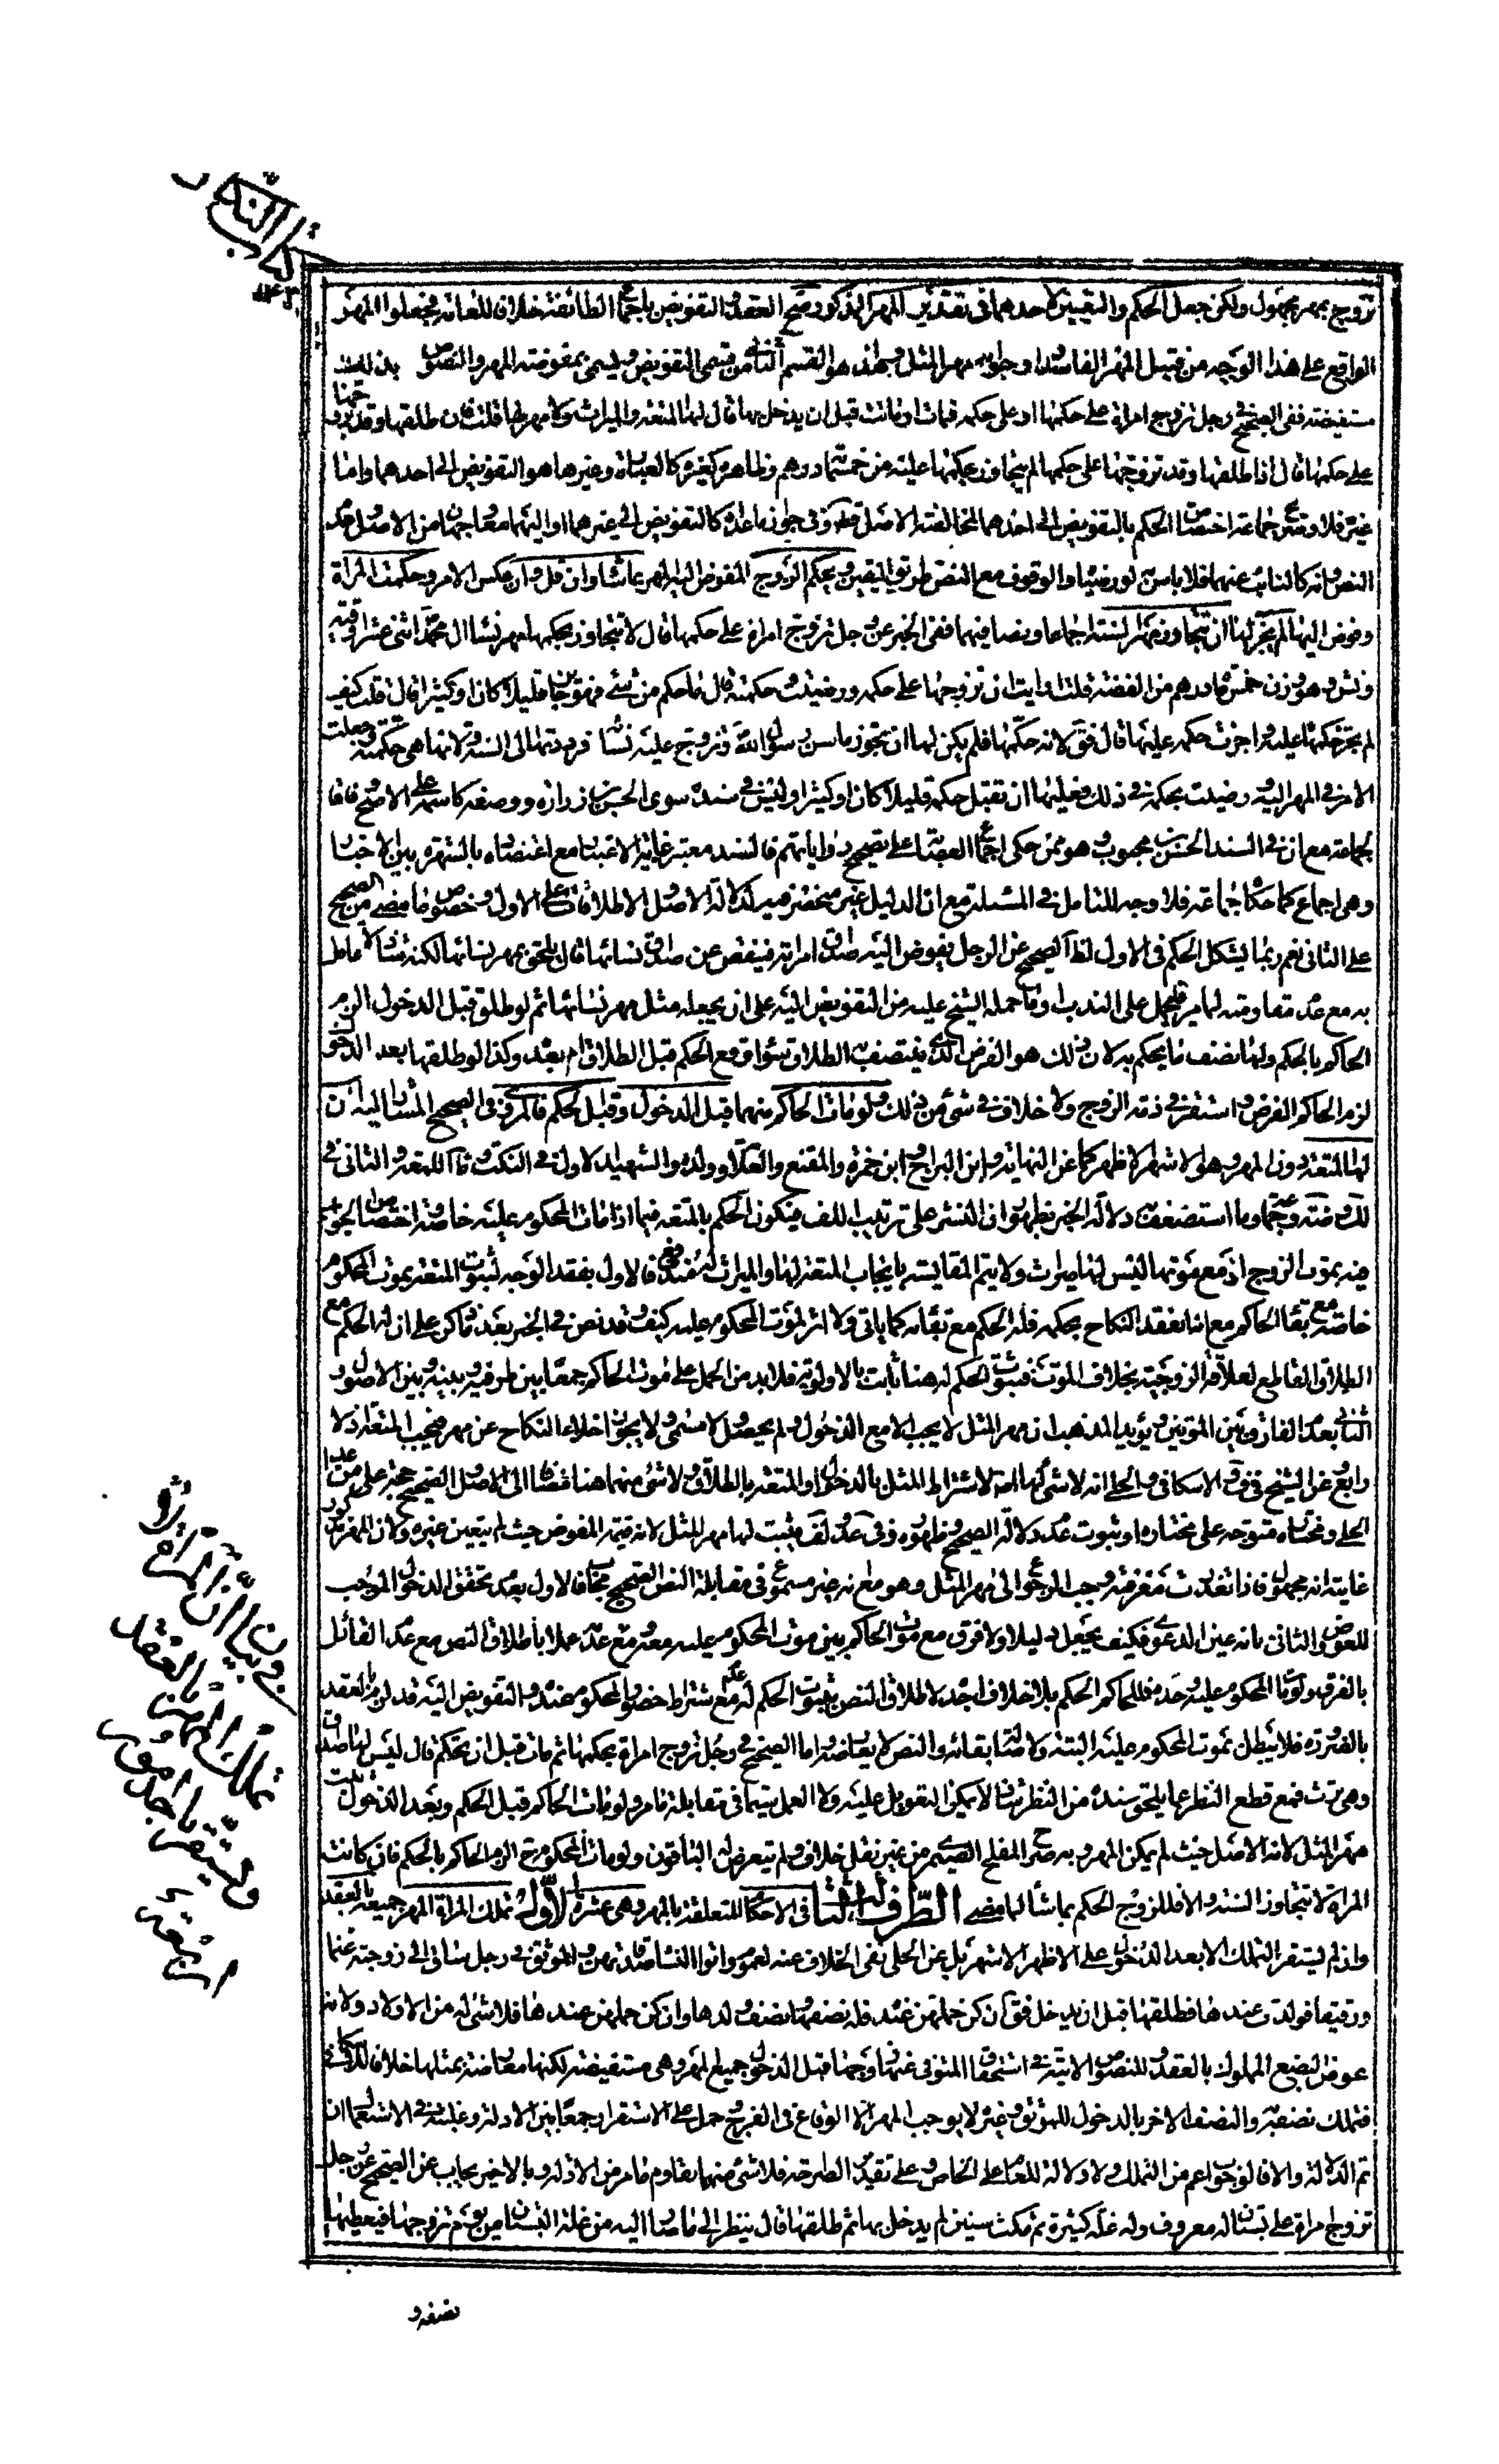 كتاب النكاح
تزوج بمهر مجهول ولكن جعل الحكم والتعيين لاحدهما في تقدير المهر المذكور صح العقد والتفويض باجماع الطائفة خلافا للعامة فجعلوا المهر
الواقع على هذا الوجه من قبيل المهر الفاسد واوجبوا به مهر المثل وهذا هو القسم الثاني من قسمي التفويض ويسمى بمفوضة المهر والنصوص بذلك
مستفيضة ففي الصحيح في رجل تزوج امراة على حكمها او على حكمه فمات او ماتت قبل ان يدخل بها قال لها المتعة والميراث ولا مهر لها قلت فان طلقها وقد تزوجها
على حكمها قال اذا طلقها وقد تزوجها على حكمها لم يتجاوز بحكمها عليه من خمسمائة درهم وظاهره كغيره كالعبارة وغيرها هو التفويض الى احدهما واما
غيره فلا وعن جماعة اختصاص الحكم بالتفويض الى احدهما لمخالفته الاصل وفي جواز ما عداه كالتفويض الى غيرهما او اليهما معا وجهان من الاصل وعدم
النص وانه كالنائب عنهما فلا باس لو رضيا والوقوف مع النص طريق اليقين ويحكم الزوج المفوض اليه المهر بما شاء وان قل وان عكس الامر وحكمت المراة
وفوض اليها لم يجز لها ان تتجاوز مهر السنة اجماعا ونصا فيهما ففي الخبر عن رجل تزوج امراة على حكمها قال لا تتجاوز بحكمها مهر نساء ال محمد اثنتي عشرة اوقية
ونش وهو وزن خمسمائة درهم من الفضة قلت ارايت ان تزوجها على حكمه ورضيت بحكمه قال ما حكم من شيء فهو جائز قليلا كان او كثيرا قال قلت كيف
لم تجز حكمها عليه واجزت حكمه عليها قال فق لانه حكمها فلم يكن لها ان تجوز ما سن رسول الله وتزوج عليه نسائه فرددتها الى السنة ولانها هي حكمته وجعلت
الامر في المهر اليه ورضيت بحكمه في ذلك فعليها ان تقبل حكمه قليلا كان او كثيرا وليس في سنده سوى الحسن بن زرارة ووصفه كاسمه على الاصح وفاقا
لجماعة مع ان في السند الحسن بن محبوب وهو ممن حكى اجماع العصابة على تصحيح رواياتهم فالسند معتبر غاية الاعتبار مع اعتضاده بالشهرة بين الاخيار
وهي اجماع كما حكاه جماعة فلا وجه للتامل في المسئلة مع ان الدليل غير منحصر فيه لدلالة الاصل والاطلاقات على الاول وخصوص ما مضى من الصحيح
على الثاني نعم ربما يشكل الحكم في الاول لظاهر الصحيح عن الرجل يفوض اليه صداق امراته فينقص عن صداق نسائها قال يلحق بمهر نسائها لكنه شاذ لا عامل
به مع عدم مقاومته لما مر فليحمل على الندب او ما حمله الشيخ عليه من التفويض اليه على ان يجعله مثل مهر نسائها ثم لو طلق قبل الدخول الزم
الحاكم بالحكم ولها نصف ما يحكم به لان ذلك هو الفرض الذي ينتصف بالطلاق سواء وقع الحكم قبل الطلاق ام بعده وكذا لو طلقها بعد الدخول
لزم الحاكم الفرض واستقر في ذمة الزوج ولا خلاف في شيء من ذلك ولو مات الحاكم منهما قبل الدخول وقبل الحكم فالمروي في الصحيح المشار اليه ان
لها المتعة دون المهر وهو الاشهر الاظهر كما عن النهاية وابن البراج وابن حمزة والمقنع والعلامة وولده والشهيد الاول في النكت
خاصة مع بقاء الحاكم
الطلاق القاطع لعلاقة الزوجية بخلاف الموت فثبوت الحكم له هنا ثابت بالاولوية فلا بد من الحمل على موت الحاكم جمعا بين طرفيه وبينه وبين الاصول
الثاني بعد الفارق بين الموتين ويؤيد المذهب ان مهر المثل لا يجب الا مع الدخول ولم يحصل ولا مسمى ولا يجوز اخلاء النكاح عن مهر فيجب المتعة اذ لا
رابع وعن الشيخ في ف والاسكافي والحلي انه لا شيء لها اصلا لاشتراط المثل بالدخول والمتعة بالطلاق ولا شيء منهما هنا فمضافا الى الاصل الصحيح حجة على من عدا
الحلي
غايته انه مجهول فاذا تعذرت معرفته وجب الرجوع الى مهر المثل وهو مع انه غير مسموع في مقابلة النص الصحيح مجاب فالاول بعدم تحقق الدخول الموجب
للعوض والثاني بانه عين الدعوى فكيف يجعل دليلا ولا فرق مع موت الحاكم بين موت المحكوم عليه معه مع عدمه عملا باطلاق النص مع عدم القائل
بالفرق ولو مات المحكوم عليه وحده فللحاكم الحكم بلا خلاف اجده لاطلاق النص بثبوت الحكم له مع عدم اشتراط حضور المحكوم عنده والتفويض اليه قد لزم بالعقد
بالضرورة فلا يبطل بموت المحكوم عليه البتة والاصل بقائه والنص لا يعارضه اما الصحيح في رجل تزوج امراة بحكمها ثم مات قبل ان تحكم قال ليس لها صداق
وهي ترث فمع قطع النظر عما يلحق سنده من النظر شاذ لا يمكن التعويل عليه ولا العمل سيما في مقابلة ما مر ولو مات الحاكم قبل الحكم وبعد الدخول ثبت
مهر المثل لانه الاصل حيث لم يكن المهر وبه صرح المفلح الصيمري من غير نقل خلاف ولم يتعرض له الباقون ولو مات المحكوم ح الزم الحاكم بالحكم فان كانت
المراة لا تتجاوز السنة والا فللزوج الحكم بما شاء لما مضى الطرف الثالث في الاحكام المتعلقة بالمهر وهي عشرة الاول تملك المراة المهر جميعه بالعقد
وان لم يستقر التملك الا بعد الدخول على الاظهر الاشهر بل عن الحلي نفي الخلاف عنه لعموم واتوا النساء صدقاتهن والموثق في رجل ساق الى زوجته غنما
ورقيقا فولدت عندها فطلقها قبل ان يدخل فق ان كن حملن عنده فله نصفها ونصف ولدها وان كن حملن عندها فلا شيء له من الاولاد ولانه
عوض البضع المملوك بالعقد وللنصوص الاتية في استحقاق المتوفى عنها زوجها قبل الدخول جميع المهر وهي مستفيضة لكنها معارضة بمثلها خلافا للاسكافي
فتملك نصفه والنصف الاخر بالدخول للموثق وغيره لا يوجب المهر الا الوقاع في الفرج وحمل على الاستقرار جمعا بين الادلة وغلبته في الاستعمال ان
تم الدلالة والا فالوجوب اعم من التملك ولا دلالة للعام على الخاص وعلى تقدير الصراحة فلا شيء منها يقاوم ما مر من الادلة وبالاخير يجاب عن الصحيح عن رجل
تزوج امراة على بستان له معروف وله غلة كثيرة ثم مكث سنين لم يدخل بها ثم طلقها قال ينظر الى ما صار اليه من غلة البستان من يوم تزوجها فيعطيها
نصفه و
في بيان ان المراة
تملك المهر بالعقد
ويستقر باحد امور
اربعة